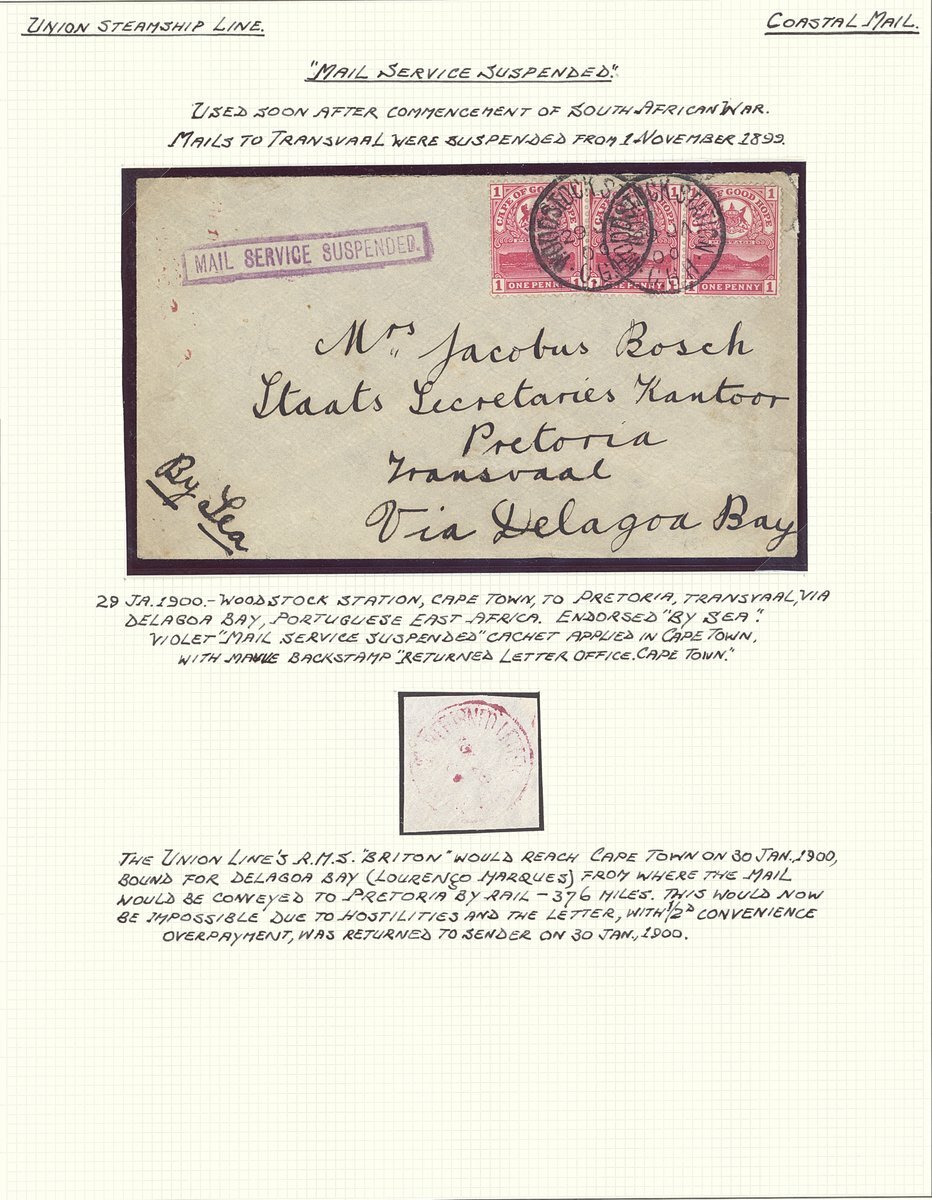 UNION STEAMSHIP LINE.
COASTAL MAIL.
"MAIL SERVICE SUSPENDED."
USED SOON AFTER COMMENCEMENT OF SOUTH AFRICAN WAR.
MAILS TO TRANSVAAL WERE SUSPENDED FROM 1 NOVEMBER 1899.
MAIL SERVICE SUSPENDED.
1 CAPE OF GOOD HOPE 1
1 ONE PENNY 1
ONE PENNY 1
OF GOOD HOPE 1
1 ONE PENNY 1
WOODSTOCK STATION
C.G.H.
Mrs Jacobus Bosch
Staats Secretaries Kantoor
Pretoria
Transvaal
Via Delagoa Bay
By Sea
29 JA. 1900.- WOODSTOCK STATION, CAPE TOWN, TO PRETORIA, TRANSVAAL, VIA
DELAGOA BAY, PORTUGUESE EAST AFRICA. ENDORSED "BY SEA".
VIOLET "MAIL SERVICE SUSPENDED" CACHET APPLIED IN CAPE TOWN,
WITH MAUVE BACKSTAMP "RETURNED LETTER OFFICE. CAPE TOWN."
RETURNED LETTER
THE UNION LINE'S R.M.S. "BRITON" WOULD REACH CAPE TOWN ON 30 JAN., 1900,
BOUND FOR DELAGOA BAY (LOURENÇO MARQUES) FROM WHERE THE MAIL
WOULD BE CONVEYED TO PRETORIA BY RAIL - 376 MILES. THIS WOULD NOW
BE IMPOSSIBLE DUE TO HOSTILITIES AND THE LETTER, WITH ½D CONVENIENCE
OVERPAYMENT, WAS RETURNED TO SENDER ON 30 JAN., 1900.